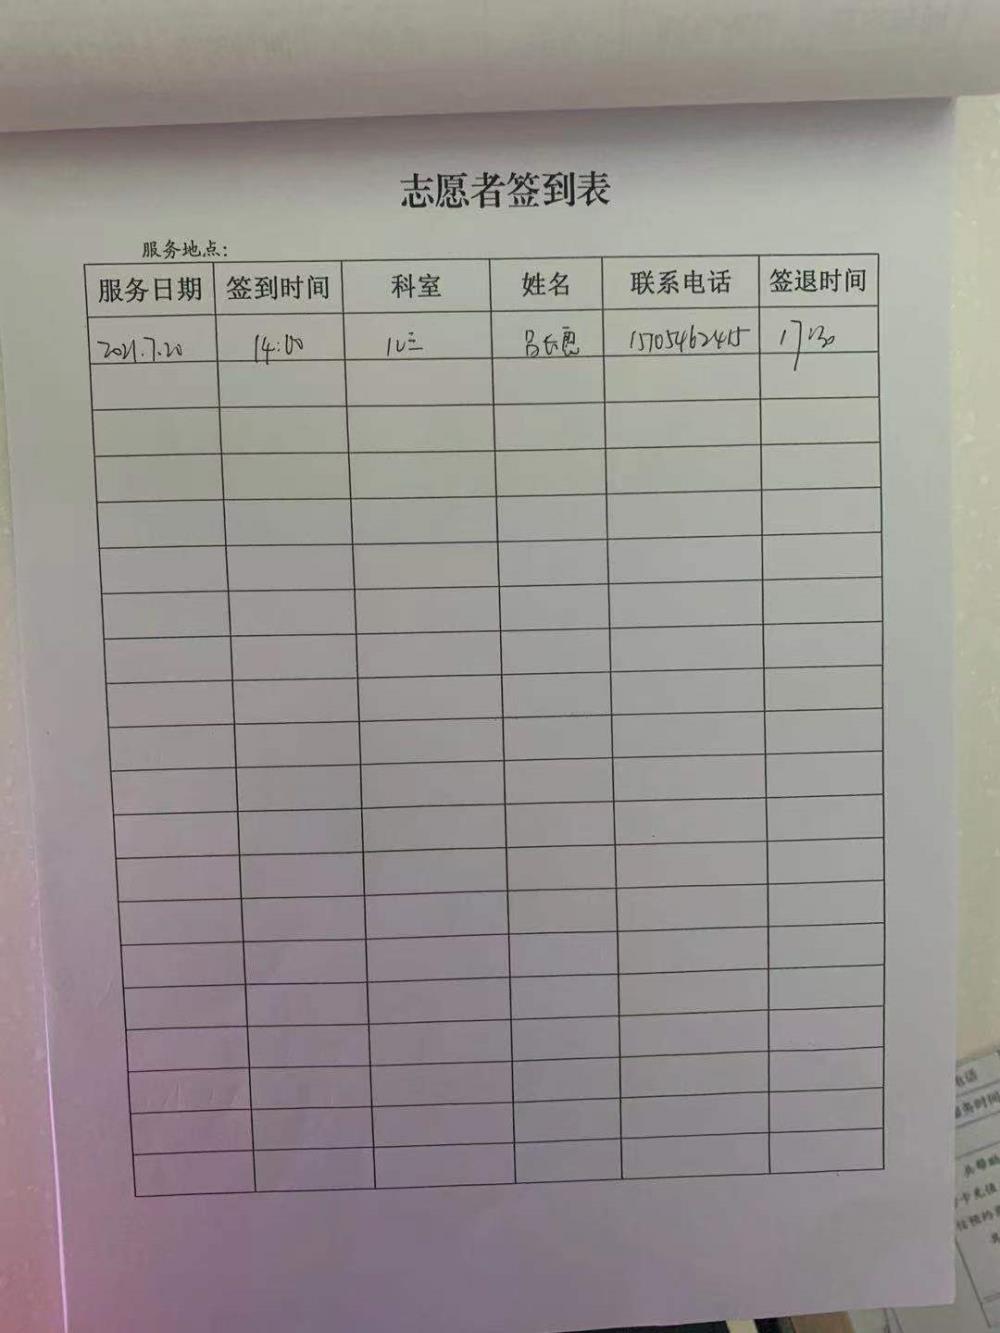 志愿者签到表
服务地点:
服务日期 签到时间 科室 姓名 联系电话 签退时间
2021.7.20 14:00 儿三 吕长惠 15705462415 17:30
电话
服务时间